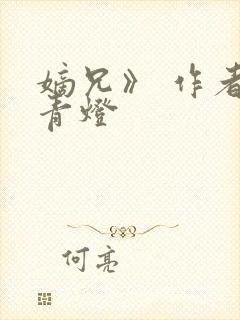 嫡兄》 作者
青燈
何亮